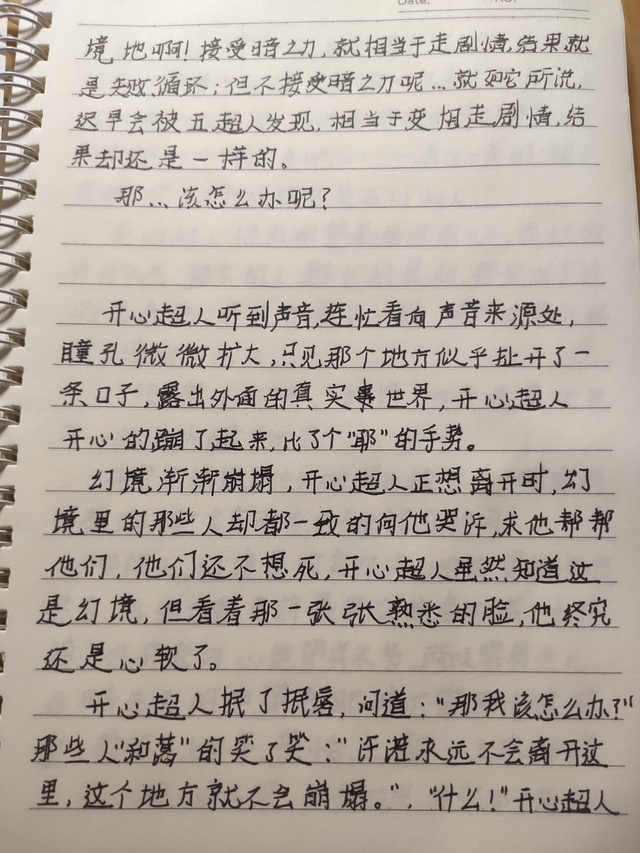 Date.
境地啊！接受暗之力，就相当于走剧情，结果就
是失败循环；但不接受暗之力呢…就如它所说，
迟早会被五超人发现，相当于变相走剧情，结
果却还是一样的。
那…该怎么办呢？
开心超人听到声音，连忙看向声音来源处，
瞳孔微微扩大，只见那个地方似乎扯开了一
条口子，露出外面的真实世界，开心超人
开心的蹦了起来，比了个“耶”的手势。
幻境渐渐崩塌，开心超人正想离开时，幻
境里的那些人却都一致的向他哭诉，求他帮帮
他们，他们还不想死，开心超人虽然知道这
是幻境，但看着那一张张熟悉的脸，他终究
还是心软了。
开心超人抿了抿唇，问道：“那我该怎么办？”
那些人“和蔼”的笑了笑：“许诺永远不会离开这
里，这个地方就不会崩塌。”，“什么！”开心超人